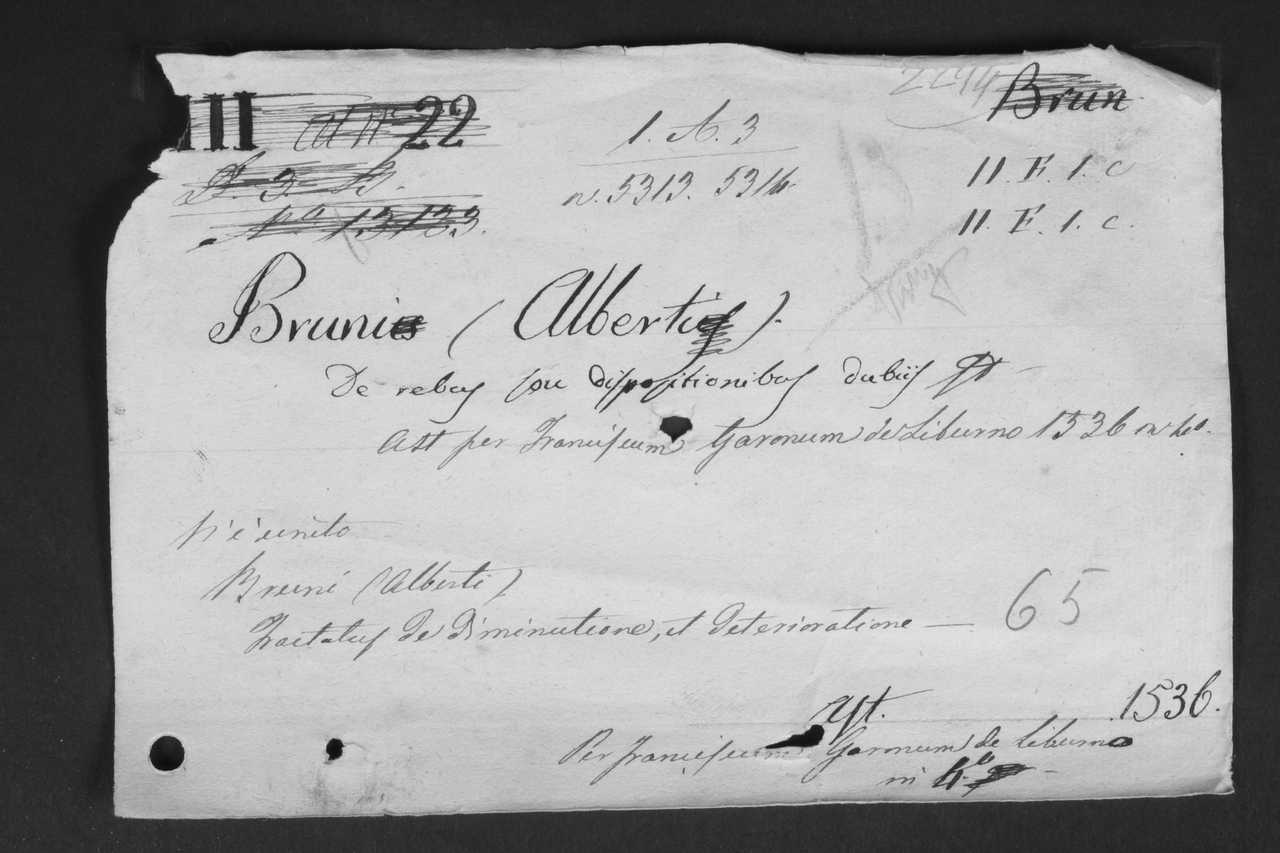 III 22
2244
Brun
1. A. 3
n. 5313. 5314
II. F. 1. c
Nº 13133.
II. F. 1. c.
Bruni (Alberti).
De rebus seu dispositionibus dubiis
Ast per Franciscum Garonum de Liburno 1536 in 4º.
Vi è unito
Bruni (Alberti)
Tractatus de diminutione, et deterioratione —
65
Ast. 1536.
Per Franciscum Garonum de Liburno
in 4º